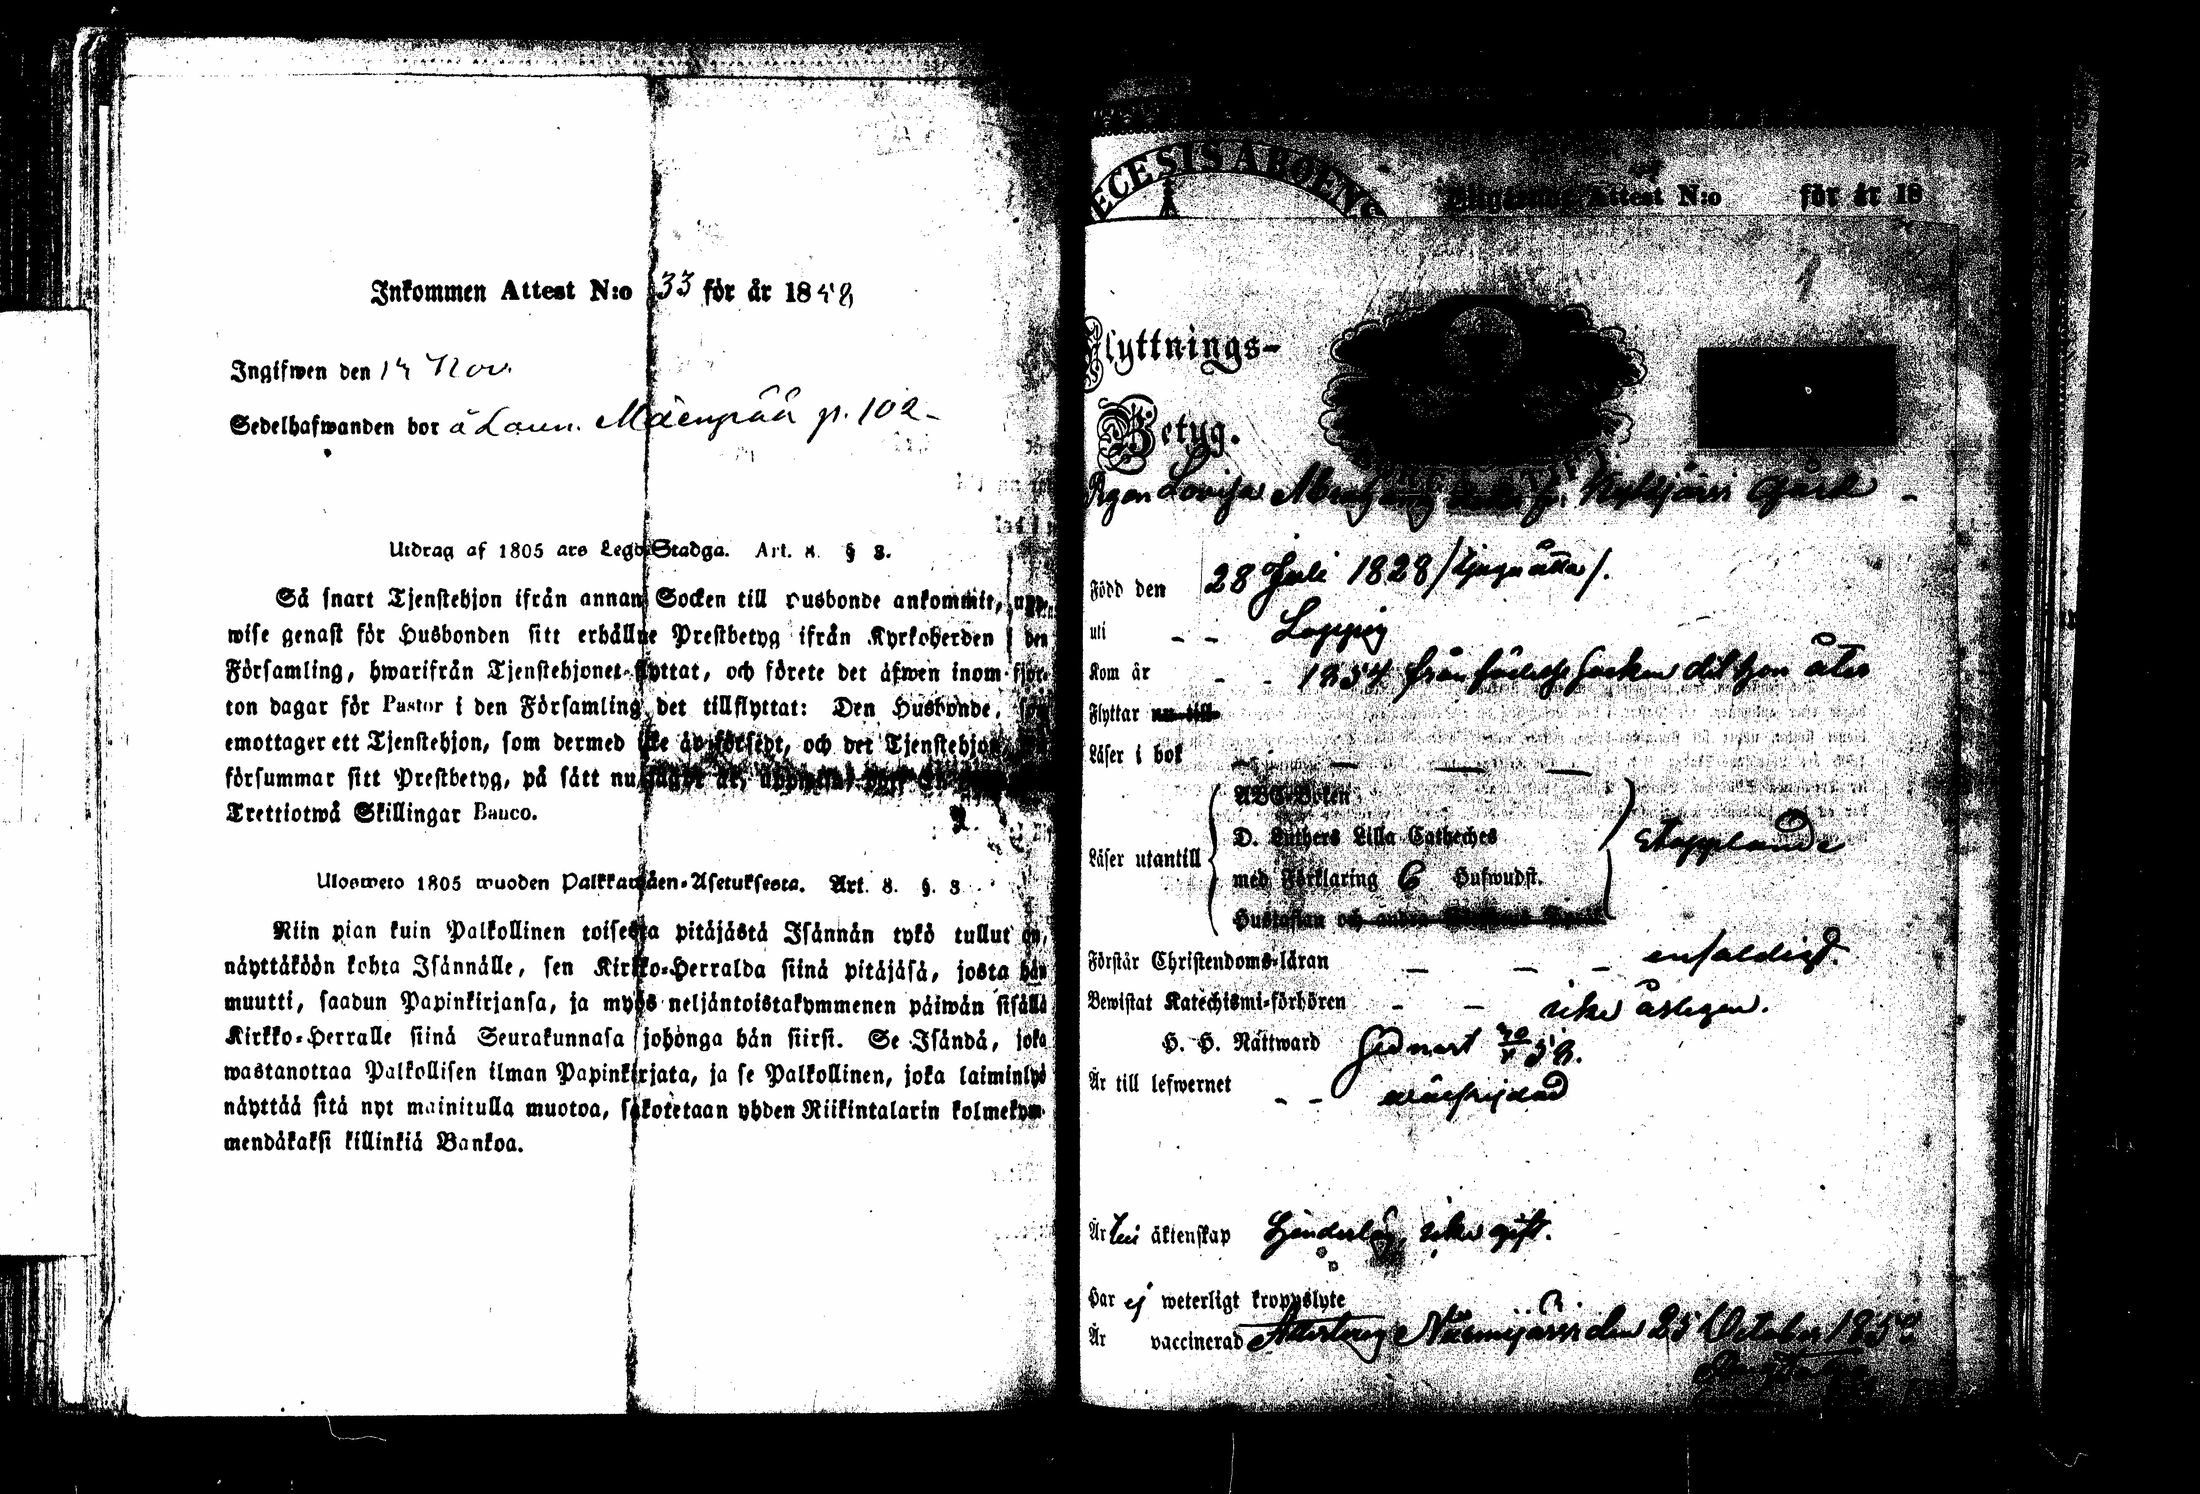 Inkommen Attest N:o 33 för år 1858
Ingifwen den 14 Nov.
Sedelhafwanden bor å Laun. Mäenpää p. 102
Utdrag af 1805 års Lego-Stadga. Art. 8. § 3.
Så snart Tjenstehjon ifrån annan Socken till Husbonde ankommit, upp-
wise genast för Husbonden sitt erhållne Prestbetyg ifrån Kyrkoherden i den
Församling, hwarifrån Tjenstehjonet flyttat, och förete det äfwen inom fjor-
ton dagar för Pastor i den Församling det tillflyttat: Den Husbonde, som
emottager ett Tjenstehjon, som dermed icke är försedt, och det Tjenstehjon,
försummar sitt Prestbetyg, på sätt nu sagdt är, uppwisa,
Trettiotwå Skillingar Banco.
Ulosweto 1805 wuoden Palkkawäen-Asetuksesta. Art. 8. §. 3.
Niin pian kuin Palkollinen toisesta pitäjästä Isännän tykö tullut on,
näyttäköön kohta Isännälle, sen Kirkko-Herralda siinä pitäjäsä, josta hän
muutti, saadun Papinkirjansa, ja myös neljäntoistakymmenen päiwän sisällä
Kirkko-Herralle siinä Seurakunnasa johonga hän siirsi. Se Isändä, joka
wastanottaa Palkollisen ilman Papinkirjata, ja se Palkollinen, joka laiminlyö
näyttää sitä nyt mainitulla muotoa, sakotetaan yhden Riikintalarin kolmekym-
mendäkaksi killinkiä Bankoa.
ECESIS ABOENS
Attest N:o för år 18
1
Flyttnings-
Betyg.
Pigan Lovisa Nykjärvi Gård
Född den 28 Juli 1828 /tjuguåtta/.
uti Loppis
Kom år 1854 från födelse socken dit hon åter
Flyttar nu till
Läser i bok
ABC-Boken
D. Luthers Lilla Catheches
Läser utantill stapplande
med Förklaring 6 Hufwudst.
Hustaflan och
Förstår Christendoms-läran enfaldigt.
Bewistat Katechismi-förhören icke årligen.
H. H. Nattward
Är till lefwernet oberyktad
Är till äktenskap hinderlös, icke gift.
Har ej weterligt kroppslyte
Är vaccinerad Attesterar Nurmijärvi den 25 October 1858